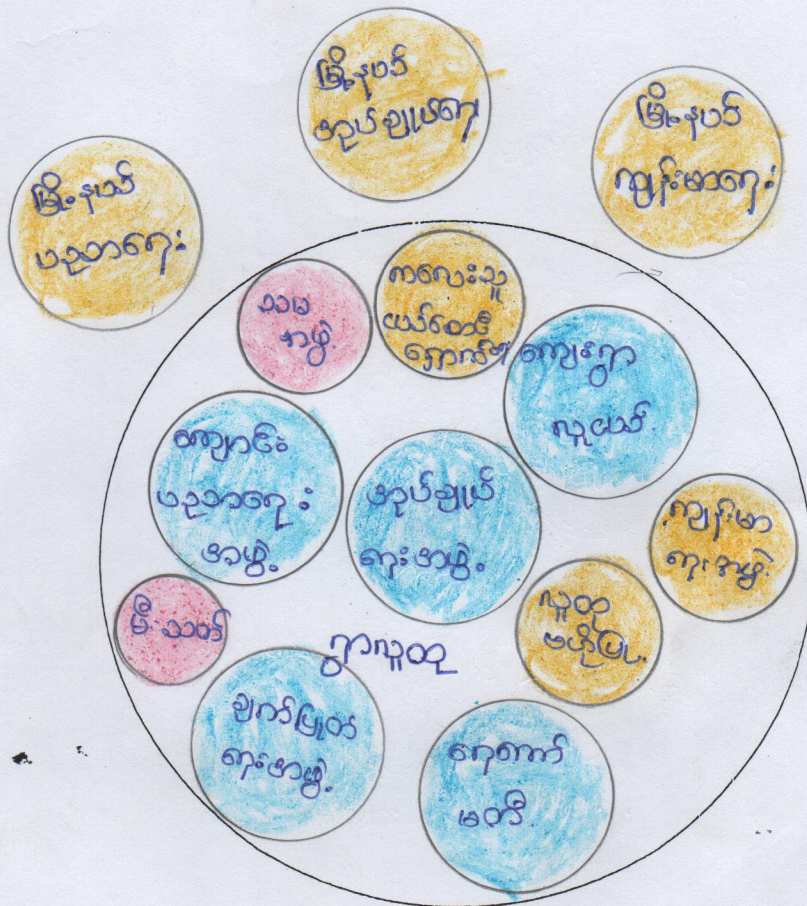 မြို့နယ်
အုပ်ချုပ်ရေး
မြို့နယ်
ကျွန်းမာရေး
မြို့နယ်
ပညာရေး
သမ
အဖွဲ့
ကလေးသူ
ငယ်စောင့်
ရှောက်ရေး
ကျေးရွာ
လူငယ်
ကျောင်း
ပညာရေး
အဖွဲ့
အုပ်ချုပ်
ရေးအဖွဲ့
ကျွန်းမာ
ရေးအဖွဲ့
မီးသတ်
လူထု
ဗဟိုပြု
ရွာလူထု
ချက်ပြုတ်
ရေးအဖွဲ့
ရေကော်
မတီ